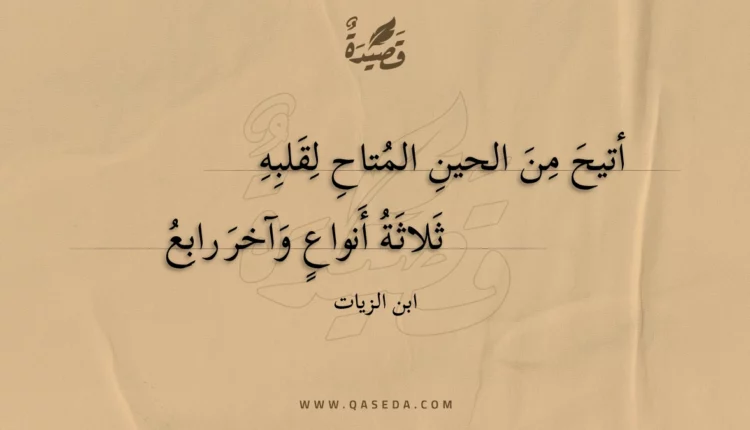 قَصِيدَةٌ
أتيحَ مِنَ الحينِ المُتاحِ لِقَلبِهِ
ثَلاثَةُ أَنواعٍ وَآخرَ رابعُ
ابن الزيات
WWW.QASEDA.COM